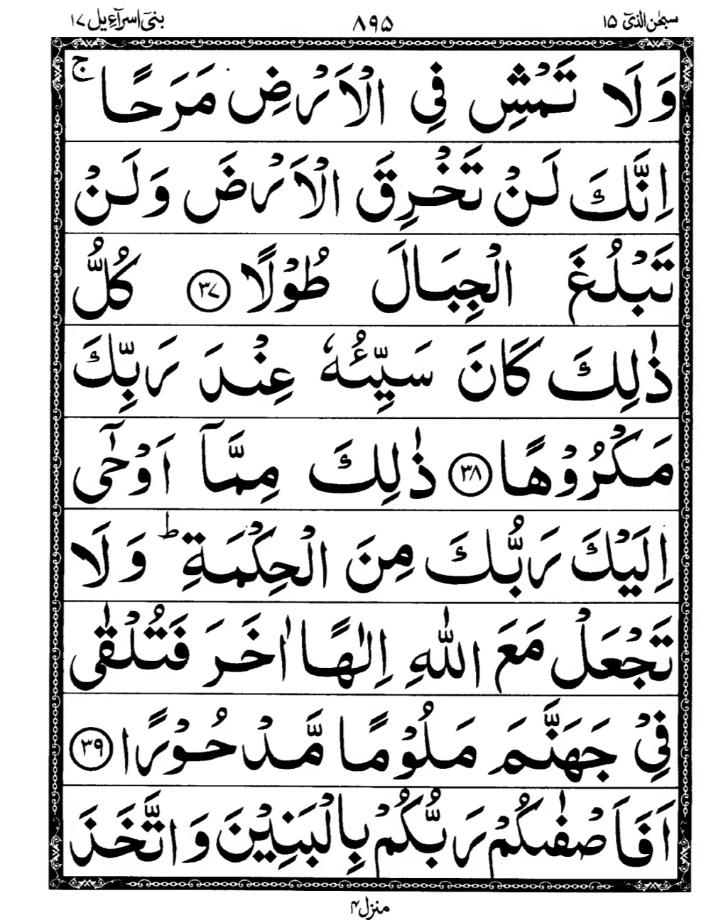 سبحٰن الذیٓ ۱۵ ۸۹۵ بنیٓ اسرآءیل ۱۷
وَلَا تَمْشِ فِي الْاَرْضِ مَرَحًا ۚ
اِنَّكَ لَنْ تَخْرِقَ الْاَرْضَ وَلَنْ
تَبْلُغَ الْجِبَالَ طُوْلًا ۳۷ كُلُّ
ذٰلِكَ كَانَ سَيِّئُهٗ عِنْدَ رَبِّكَ
مَكْرُوْهًا ۳۸ ذٰلِكَ مِمَّاۤ اَوْحٰۤى
اِلَيْكَ رَبُّكَ مِنَ الْحِكْمَةِ ؕ وَلَا
تَجْعَلْ مَعَ اللّٰهِ اِلٰهًا اٰخَرَ فَتُلْقٰى
فِيْ جَهَنَّمَ مَلُوْمًا مَّدْحُوْرًا ۳۹
اَفَاَصْفٰىكُمْ رَبُّكُمْ بِالْبَنِيْنَ وَاتَّخَذَ
منزل ۴